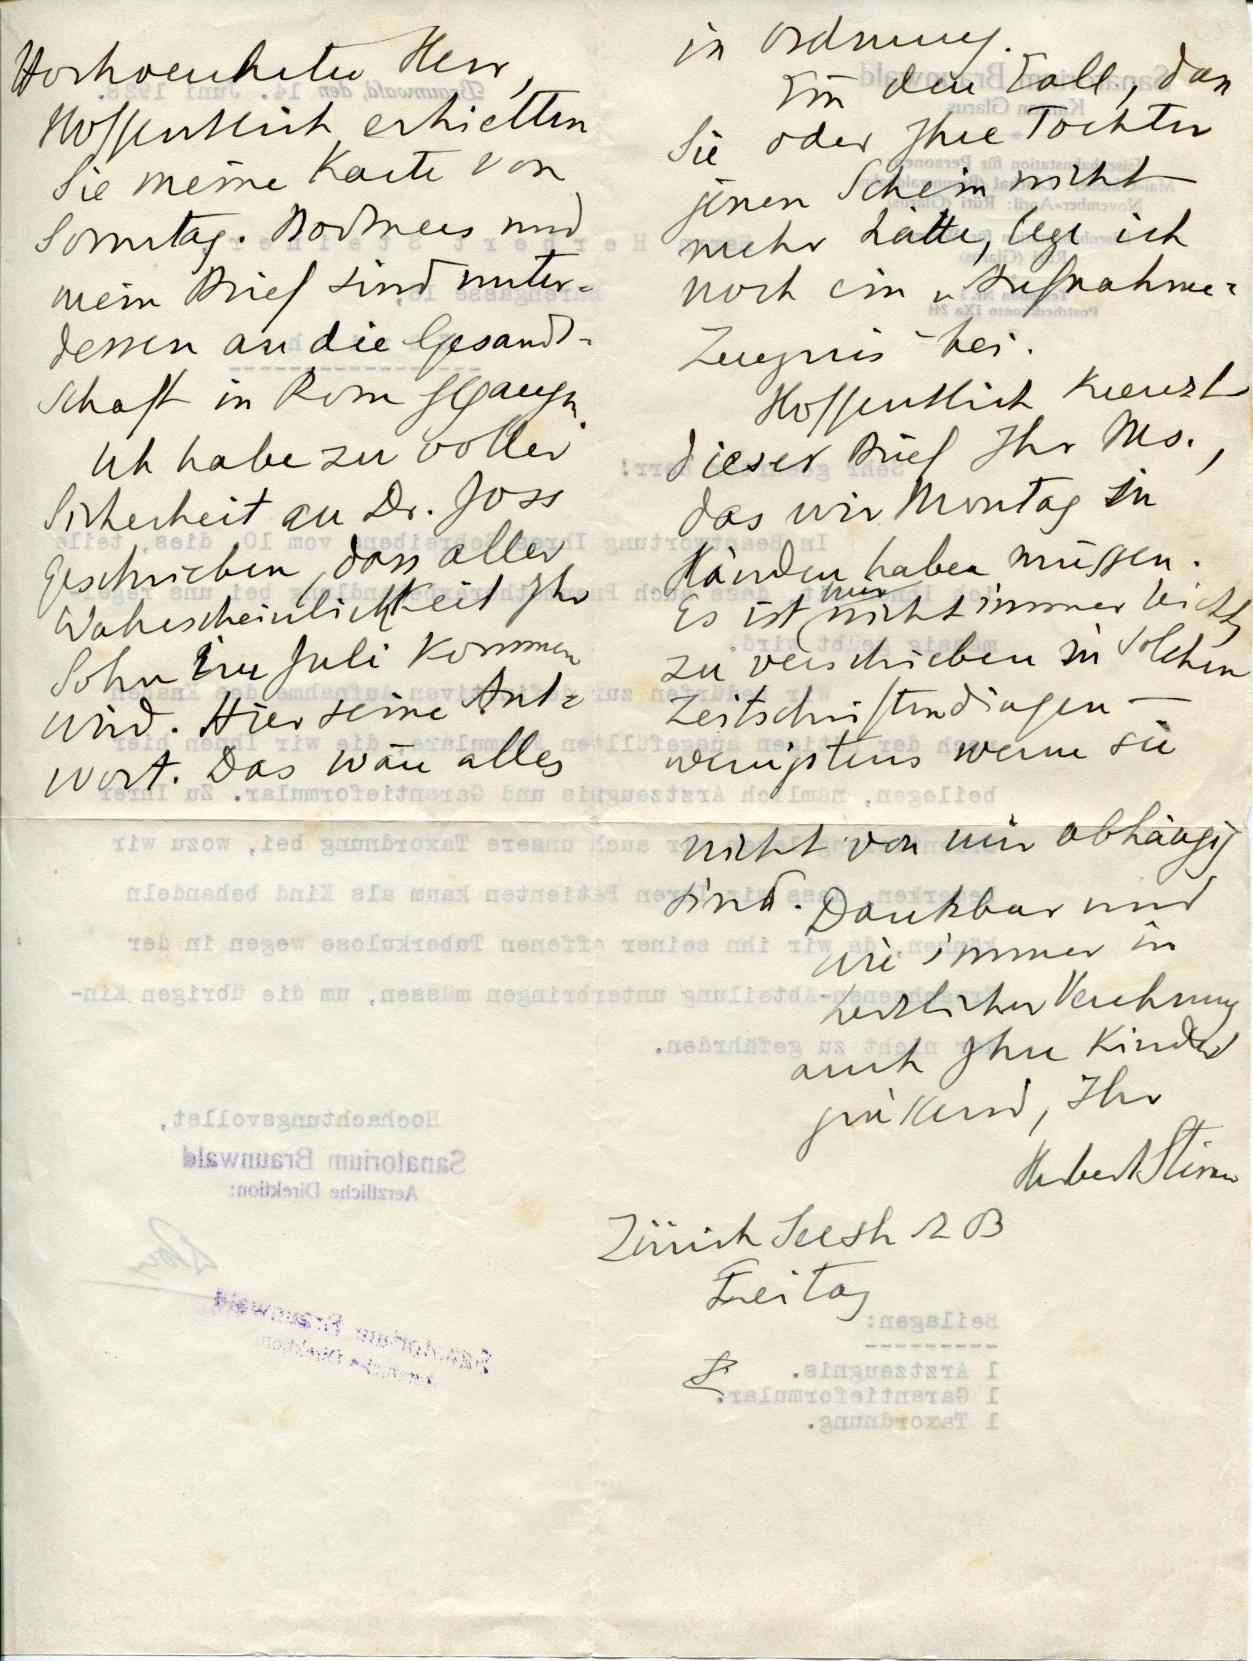 Hochverehrter Herr,
Hoffentlich erhielten
Sie meine Karte von
Sonntag. Bodmers und
mein Brief sind unter-
dessen an die Gesandt-
schaft in Rom gegangen
Ich habe zu voller
Sicherheit an Dr. Joss
geschrieben, dass aller
Wahrscheinlichkeit Ihr
Sohn im Juli kommen
wird. Hier seine Ant-
wort. Das wäre alles
in Ordnung.
Für den Fall, dass
Sie oder Ihre Tochter
jenen Schein nicht
mehr hätte, lege ich
noch ein "Aufnahme-
Zeugnis" bei.
Hoffentlich kreuzt
dieser Brief Ihr Ms.,
das wir Montag in
Händen haben müssen.
Es ist nur nicht immer leicht,
zu verschieben in solchen
Zeitschriftendingen —
wenigstens wenn sie
nicht von mir abhängig
sind. Dankbar und
wie immer in
herzlicher Verehrung
auch Ihre Kinder
grüssend, Ihr
Herbert Steiner
Zürich Seestr
Freitag
Sanatorium Braunwald
Kanton Glarus
Eisenbahnstation für Personen
November-April: Rüti (Glarus)
Postcheckkonto IXa 24
Braunwald, den 14. Juni 1928.
Herrn Herbert Steiner
Bärengasse
Sehr geehrter Herr!
In Beantwortung Ihres Schreibens vom 10. dies, teile
ich Ihnen mit, dass auch Pneumothoraxbehandlung bei uns regel-
mässig geübt wird.
Wir bedürfen zur definitiven Aufnahme des Knaben
noch der nötigen ausgefüllten Formulare, die wir Ihnen hier
beilegen, nämlich Arztzeugnis und Garantieformular. Zu Ihrer
Orientierung legen wir auch unsere Taxordnung bei, wozu wir
bemerken, dass wir Ihren Patienten kaum als Kind behandeln
können, da wir ihn seiner offenen Tuberkulose wegen in der
Erwachsenen-Abteilung unterbringen müssen, um die übrigen Kin-
der nicht zu gefährden.
Hochachtungsvollst,
Sanatorium Braunwald
Aerztliche Direktion:
Sanatorium Braunwald
Aerztliche Direktion
Beilagen:
1 Arztzeugnis.
1 Garantieformular.
1 Taxordnung.